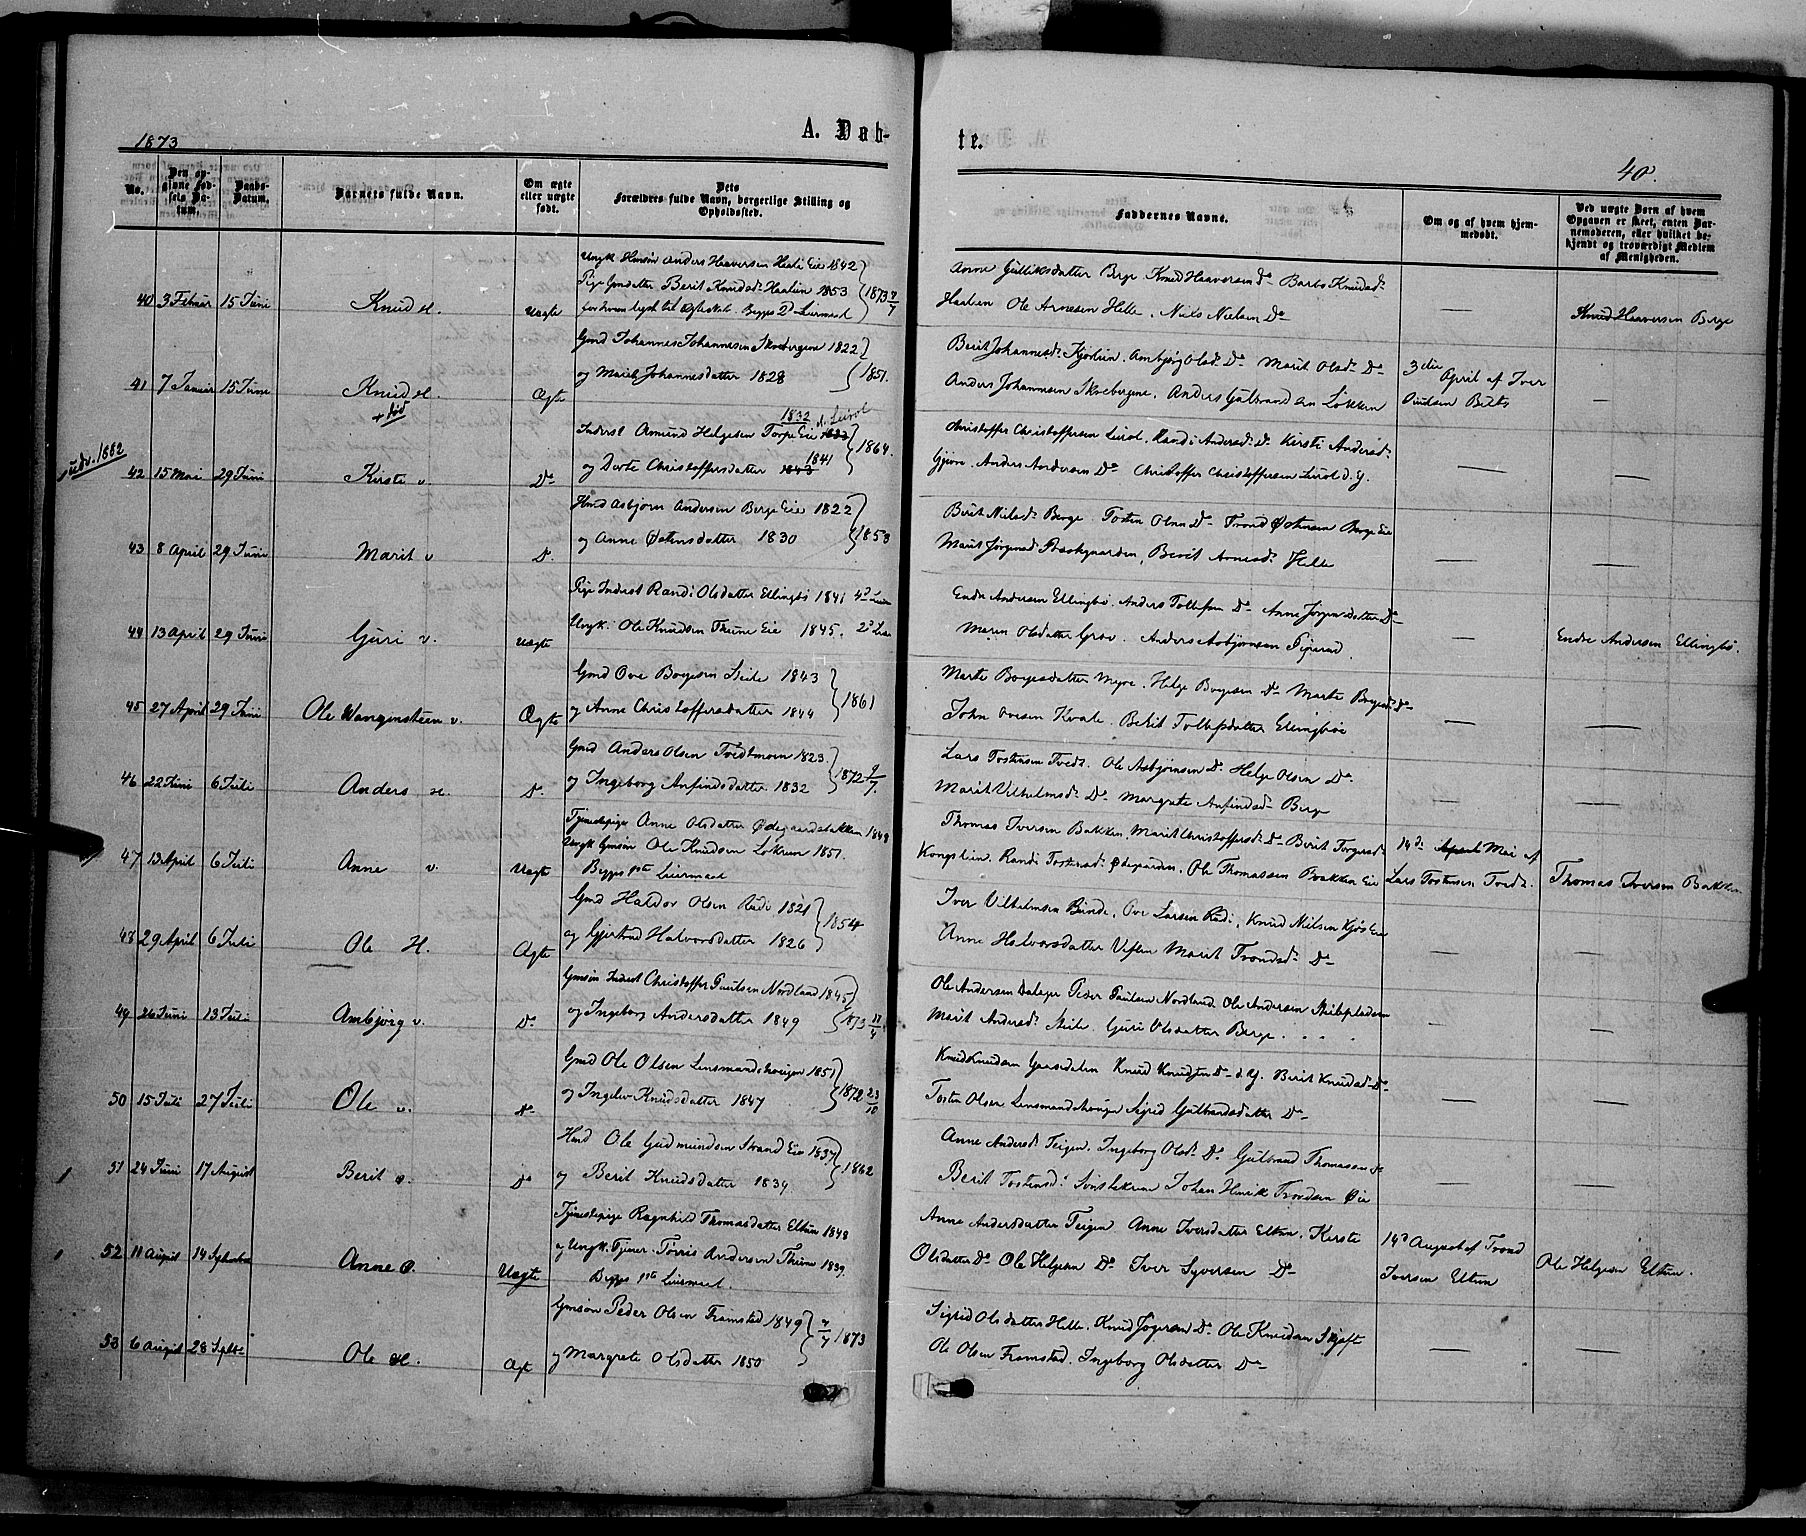 1873
A. Døb-
te.
40.
No.
Den op-
givne Fød-
sels Da-
tum.
Daabs-
Datum.
Barnets fulde Navn.
Om ægte
eller uægte
født.
Dets
Forældres fulde Navn, borgerlige Stilling og
Opholdssted.
Faddernes Navne.
Om og af hvem hjem-
medøbt.
Ved uægte Børn af hvem
Opgaven er skeet, enten Bar-
nemoderen, eller hvilket be-
kjendt og troværdigt Medlem
af Menigheden.
40 3 Februar 15 Juni Knud M. Uægte
Ungk. Gmsøn Anders Haaversen Eie 1842
Pige Gmdatter Berit Knudsd. Haalien 1853 1873 7/7
Begges 2d Leiermaal
Anne Gulliksdatter Berge Knud Haaversen Do Barbo Knudsd.
Haalien Ole Arnesen Helle, Niels Nielsen Do
Knud Haaversen Berge
41 7 Januar 15 Juni Knud M. Ægte
+ død
Gmd Johannes Johannesen Skrebergene 1822
og Marit Johannesdatter 1828 1851.
Berit Johannesd. Kjørlien, Ambjørg Olsd. Do Marit Olsd. Do
Anders Johannesen Skrebergene, Anders Gulbrandsen Løkken
3die
April af Iver
Knudsen
udv. 1882
42 15 Mai 29 Juni Kirste v. Do
1832
Inderst Amund Helgesen Torpe Eie 1833
1841
og Dorte Christoffersdatter 1843 1864.
Christoffer Christoffersen Leirol, Randi Andersd. Do Kirsti Andersd.
Gjøvre, Anders Andersen Do Christoffer Christoffersen Leirol d. y.
43 8 April 29 Juni Marit v Do
Hmd Asbjørn Andersen Berge Eie 1822
og Anne Østensdatter 1830 1853
Berit Nielsd. Berge. Tosten Olsen Do Trond Østensen Berge Eie
Marit Jørgensd. Bakgaarden, Berit Arnesd. Helle
44 13 April 29 Juni Guri v. Uægte
Pige Inderst Randi Olsdatter Ellingbø 1841
Ungk. Ole Knudsen Thune Eie 1845.
Endre Andersen Ellingbø, Anders Tollefsen Do Anne Jørgensdatter Do
Maren Olsdatter Grov. Anders Asbjørnsen
Endre Andersen Ellingbø.
45 27 April 29 Juni Ole Wangensteen v. Ægte
Gmd Ove Børgesen Leite 1843
og Anne Christoffersdatter 1844 1861
Marte Børgesdatter Myre, Helge Børgesen Do Marte Børgesd. Do
John Ovesen Kvale. Berit Tollefsdatter Ellingbøe
46 22 Juni 6 Juli Anders M. Do
Gmd Anders Olsen Tvedtmoen 1823.
og Ingeborg Anfindsdatter 1832 1872 9/7.
Lars Tostensen Tvedt. Ole Asbjørnsen Do Helge Olsen Do
Marit Vilhelmsd. Do Margrete Anfindsd. Berge
47 13 April 6 Juli Anne v. Uægte
Tjenestepige Anne Olsdatter Ødegaardsbakken 1848
Ungk Gmsøn Ole Knudsen Løkrem 1851.
Begges 1ste Leiermaal
Thomas Iversen Bakken, Marit Christoffersd. Do Berit Torgersd.
Kongslien. Randi Tostensd. Ødegaarden, Ole Thomassen Bakken Eie
14de April Mai af
Lars Tostensen Tvedt.
Thomas Iversen Bakken
48 29 April 6 Juli Ole M. Ægte
Gmd Haldor Olsen Rudi 1821
og Gjertrud Halvorsdatter 1826 1854
Iver Vilhelmsen Bunde, Ove Larsen Rudi, Knud Nielsen Kjøs Eie
Anne Halvorsdatter Marit Trondsd. Do
49 26 Juni 13 Juli Ambjørg v. Do
Gmsøn Inderst Christoffer Nordland 1845
og Ingeborg Andersdatter 1849 1873
Ole Andersen Peder Paulsen Nordland Ole Andersen
Marit Andersd. Leite, Guri Olsdatter Berge
50 15 Juli 27 Juli Ole v. Do
Gmd Ole Olsen Lensmandshougen 1851
og Ingelev Knudsdatter 1847 1872 23/10
Knud Knudsen Gaasedalen Knud Knudsen Do d. y. Berit Knudsd. Do
Tosten Olsen Lensmandshougen Sigrid Gulbrandsdatter Do
51 24 Juni 17 August Berit v. Do
Hmd Ole Gudmundsen Strand Eie 1837
og Berit Knudsdatter 1839. 1862
Anne Andersd. Teigen, Ingeborg Olsd. Do Gulbrand Thomassen Do
Berit Tostensd. Johan Henrik Trondsen Øie
52 11 August 14 September Anne v. Uægte
Tjenestepige Ragnhild Thomasdatter Eltun 1848
og Ungk. Tjener Tørris Andersen Thune 1839.
Begges 1ste Leiermaal.
Anne Andersdatter Teigen Anne Iversdatter Eltun, Kirste
Olsdatter Do Ole Helgesen Do Iver Syversen Do
14d August af Trond
Iversen Eltun
Ole Helgesen Eltun.
53 6 August 28 Septbr Ole M. Ægte
Gmsøn Peder Olsen Framstad 1849
og Margrete Olsdatter 1850 7/7 1873
Sigrid Olsdatter Helle, Knud Jøgersen Do Ole Knudsen
Ole Olsen Framstad. Ingeborg Olsdatter Do